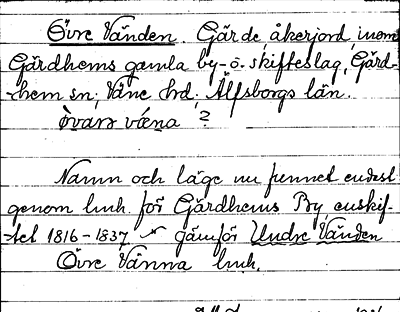 Övre Vänden. Gärde, åkerjord, inom
Gärdhems gamla by- o. skifteslag, Gärd-
hem sn; Väne hrd; Älfsborgs län.
òvarr væna ?
Namn och läge nu funnet endast
genom lmh. för Gärdhems By, enskif-
tet 1816-1837 jämför Undre Vänden
Övre Vänna lmh.